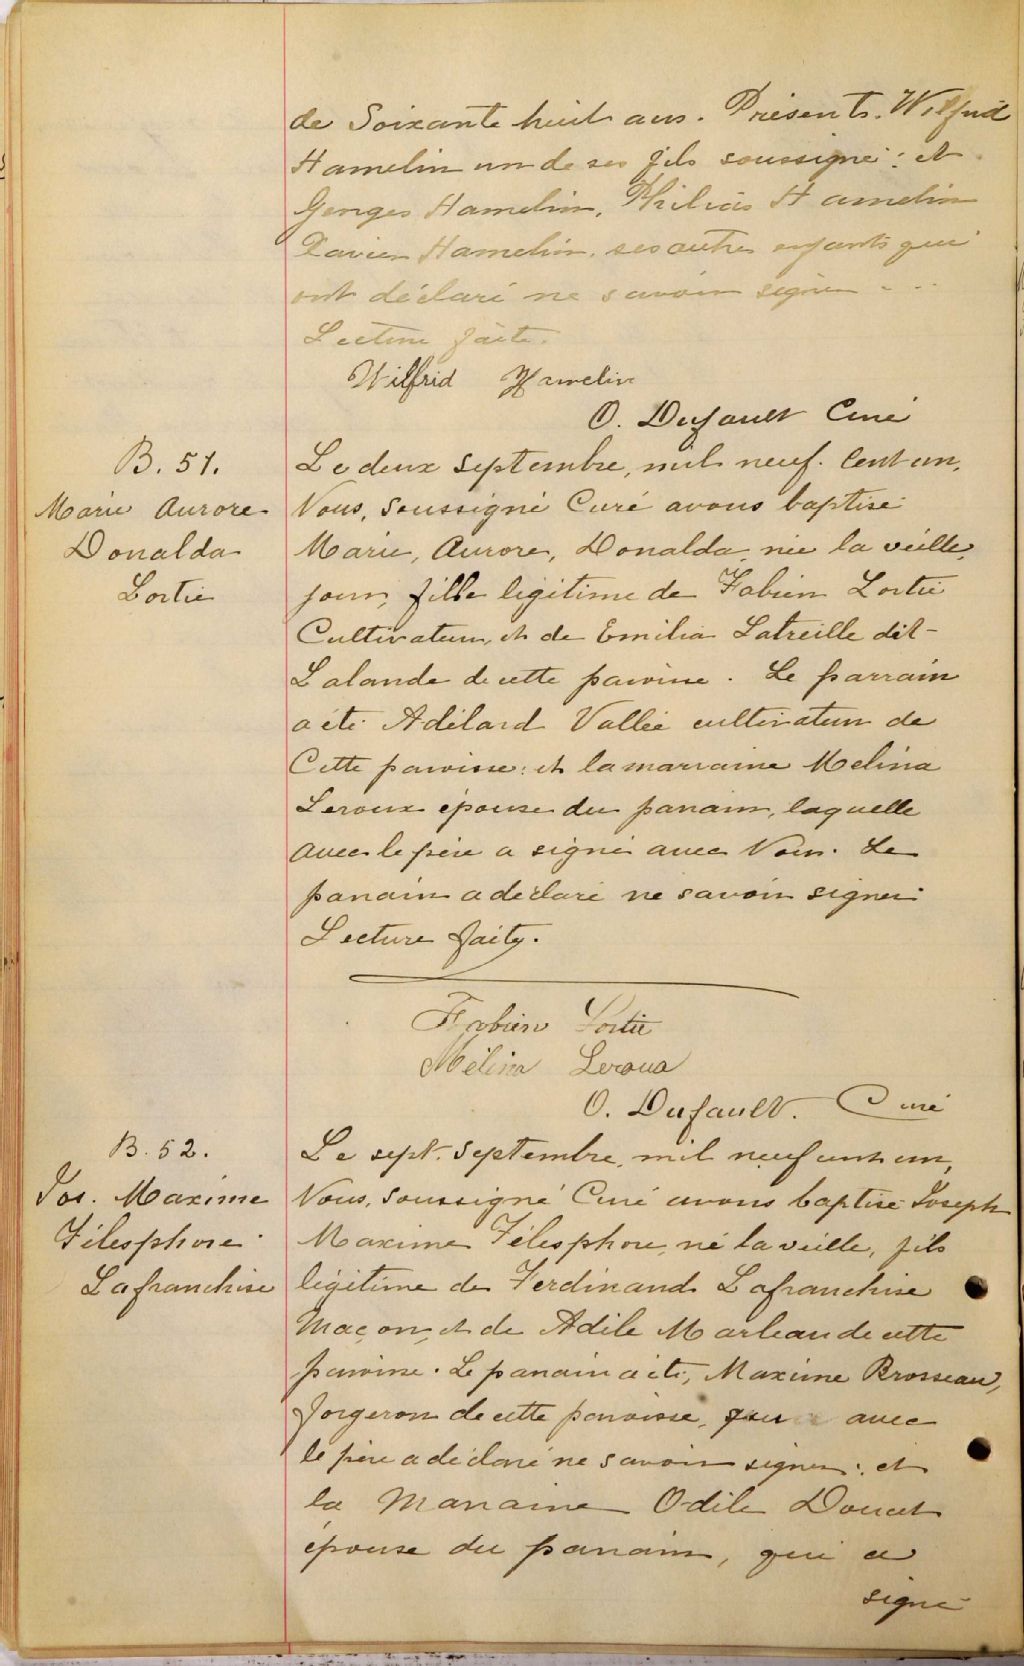 de Soixante huit ans. Présents. Wilfrid
Hamelin un de ses fils soussigné: et
Georges Hamelin, Philias Hamelin
Xavier Hamelin, ses autres enfants qui
ont déclaré ne savoir signer - . .
Lecture faite.
Wilfrid Hamelin
O. Dufault Curé
B. 51.
Marie Aurore
Donalda
Lortie
Le deux Septembre, mil neuf. Cent un,
Nous, Soussigné Curé avons baptisé
Marie, Aurore, Donalda, née la veille,
jour, fille légitime de Fabien Lortie
Cultivateur, et de Emilia Latreille dit-
Lalande de cette paroisse. Le parrain
a été Adélard Vallée cultivateur de
Cette paroisse: et la marraine Melina
Leroux épouse du parrain, laquelle
avec le père a signé avec Nous. Le
parrain a déclaré ne savoir signer.
Lecture faite.
Fabien Lortie
Mélina Leroux
O. Dufault. Curé
B. 52.
Jos. Maxime
Télesphore
Lafranchise
Le sept. Septembre, mil neuf cent un,
Nous, Soussigné Curé avons baptisé Joseph
Maxime Télesphore, né la veille, fils
légitime de Ferdinand Lafranchise
Maçon, et de Adile Marleau de cette
paroisse. Le parrain a été, Maxime Brosseau,
forgeron de cette paroisse, qui avec
le père a déclaré ne savoir signer: et
la Marraine Odile Doucet
épouse du parrain, qui a
signé